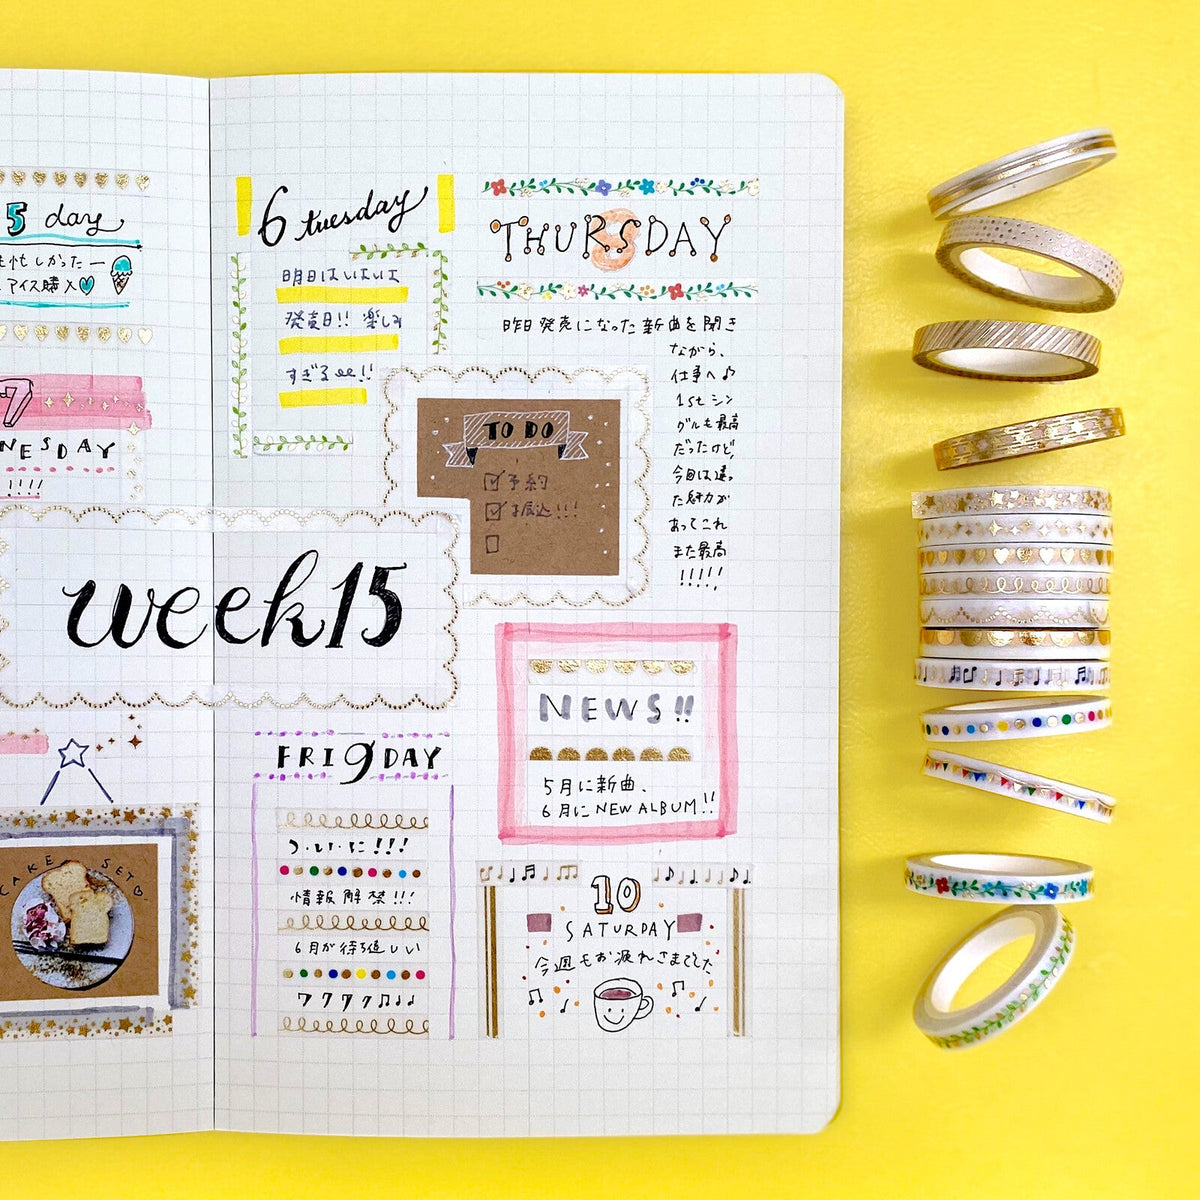 5 day
忙しかったー
アイス購入
7
NESDAY
!!!!
week15
CAKE SET
6 tuesday
明日はいよいよ
発売日!! 楽しみ
すぎる!!
THURSDAY
8
昨日発売になった新曲を聞き
ながら、
仕事へ♪
1st シン
グルも最高
だったけど、
今回は違っ
た魅力が
あってこれ
また最高
!!!!!
TO DO
予約
振込!!!
NEWS!!
5月に新曲、
6月に NEW ALBUM!!
FRI 9 DAY
つ・い・に!!!
情報解禁!!!
6月が待ち遠しい
ワクワク♫♩♩
10
SATURDAY
今週もお疲れさまでした